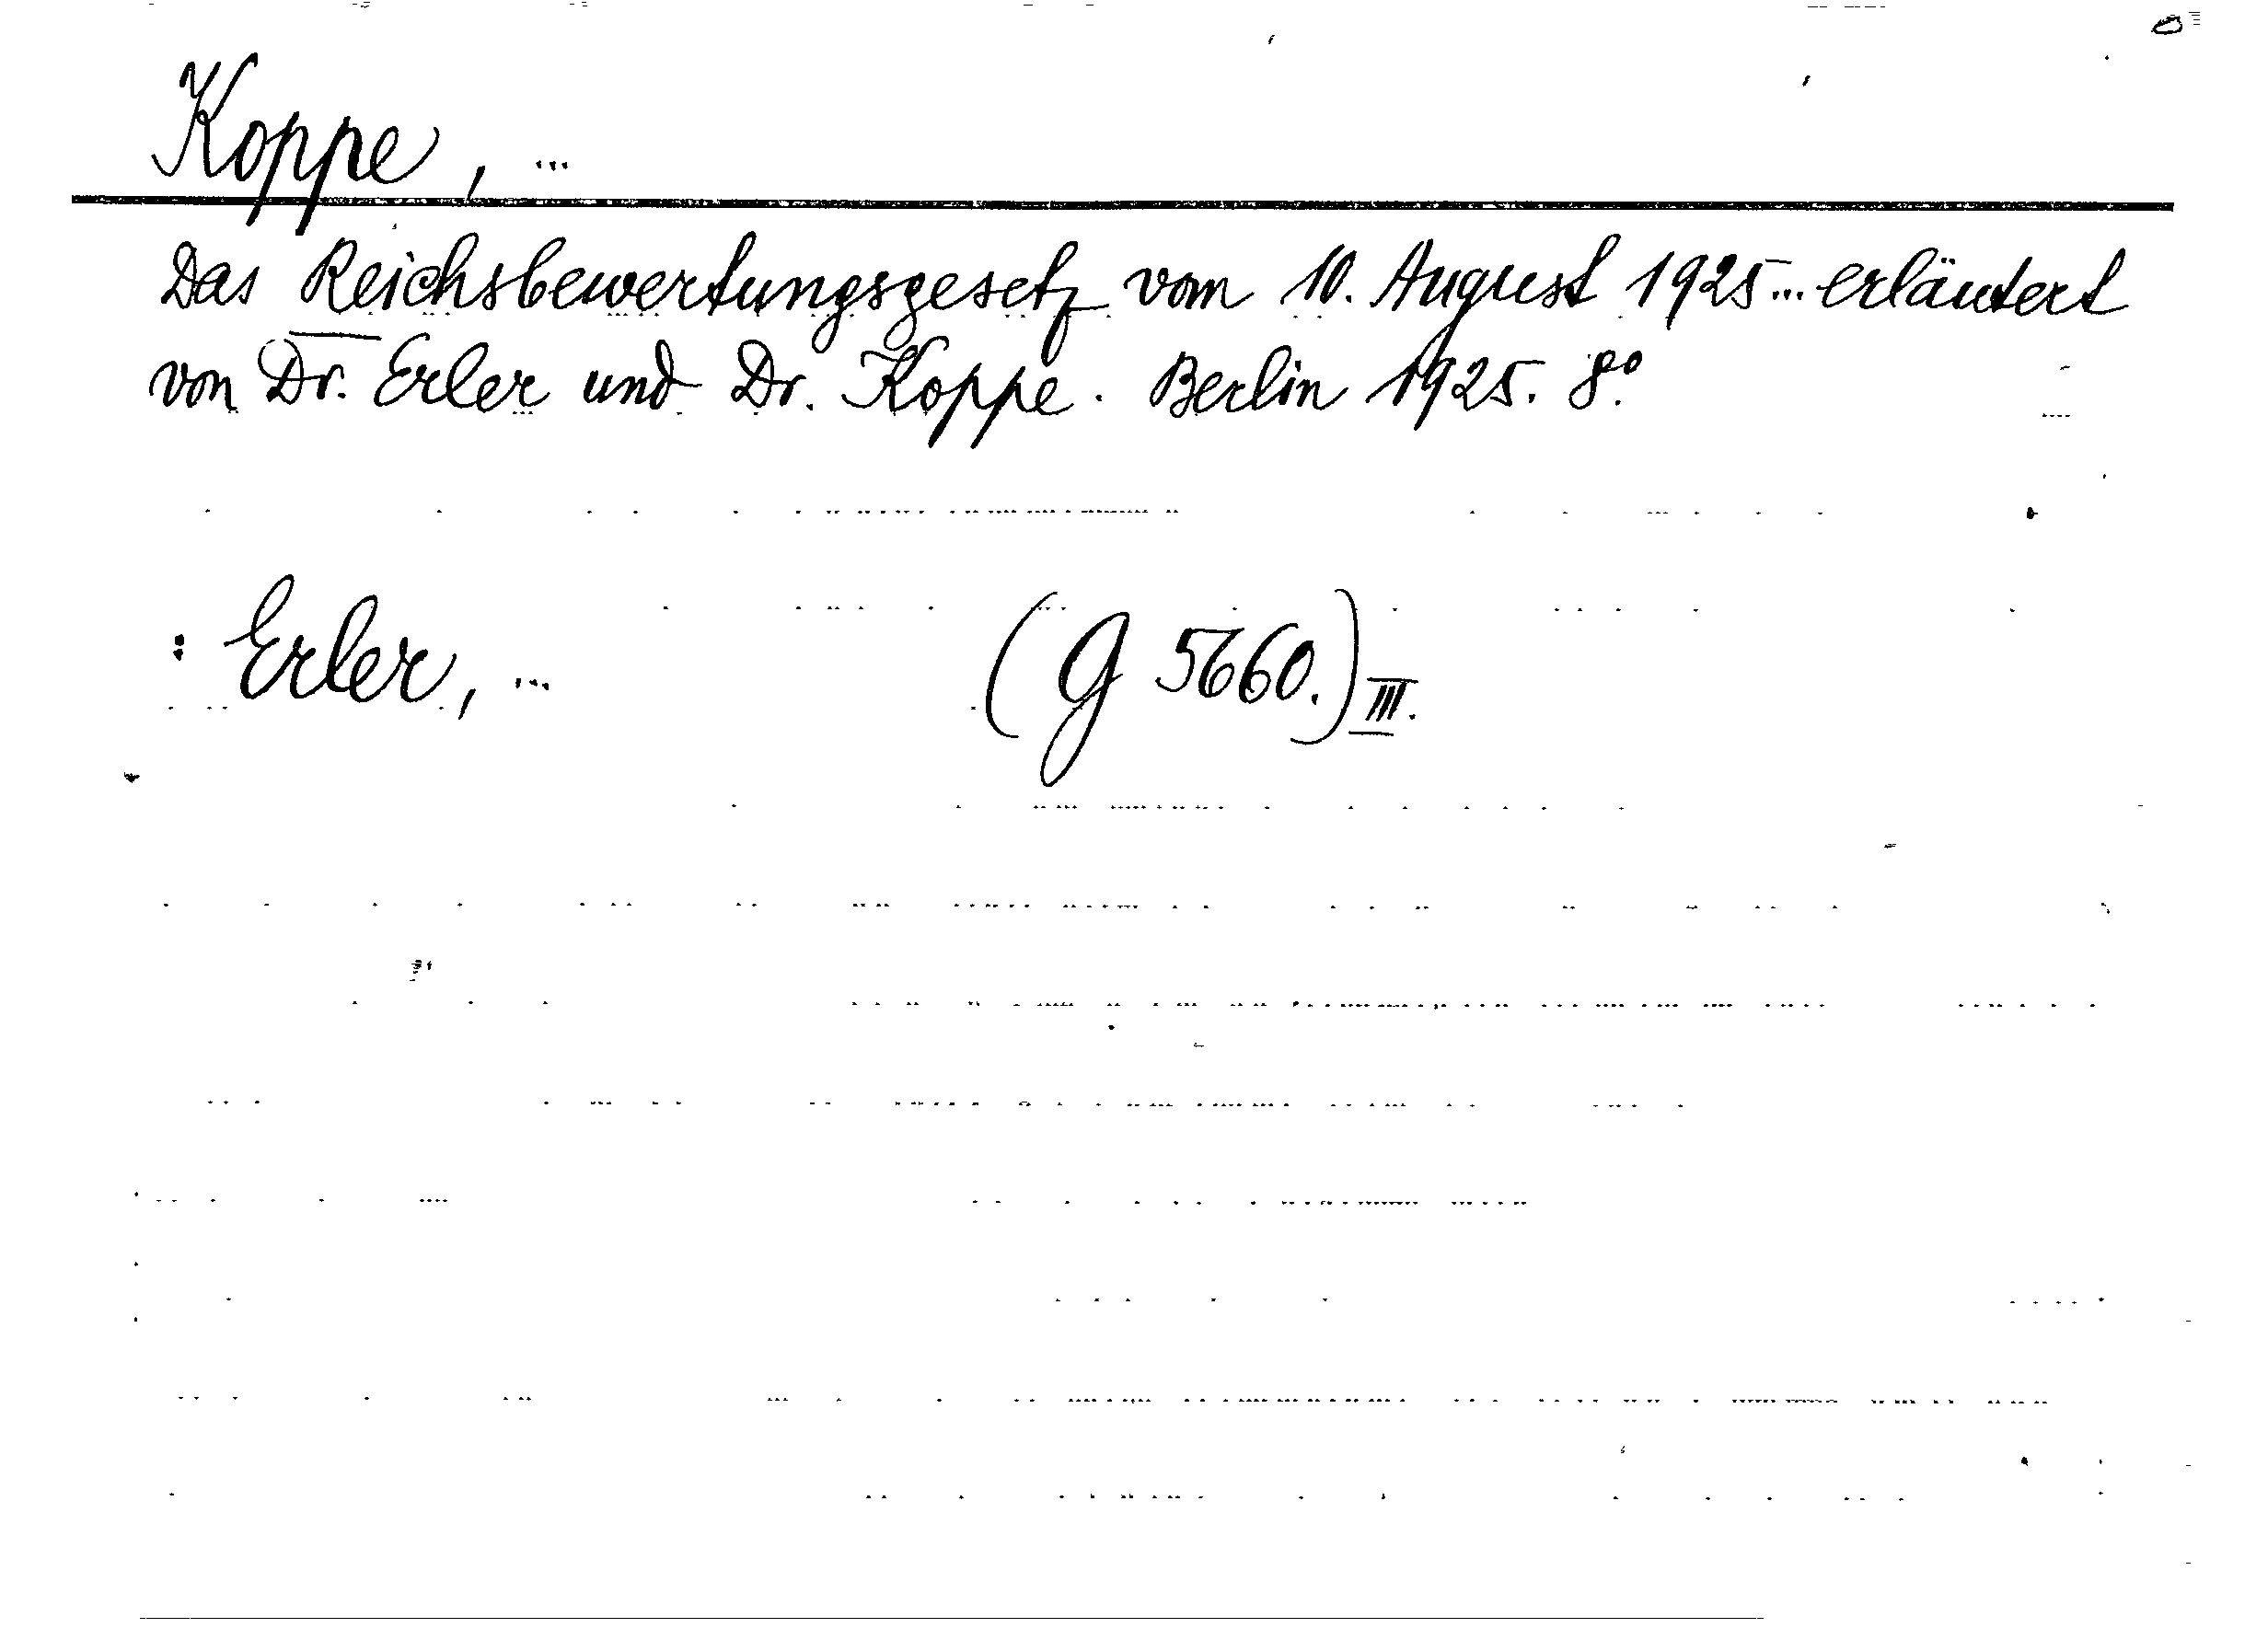 Koppe, ...
Das Reichsbewertungsgesetz vom 10. August 1925... erläutert
von Dr. Erler und Dr. Koppe. Berlin 1925. 8°.
: Erler, ... (G 5660.) III.